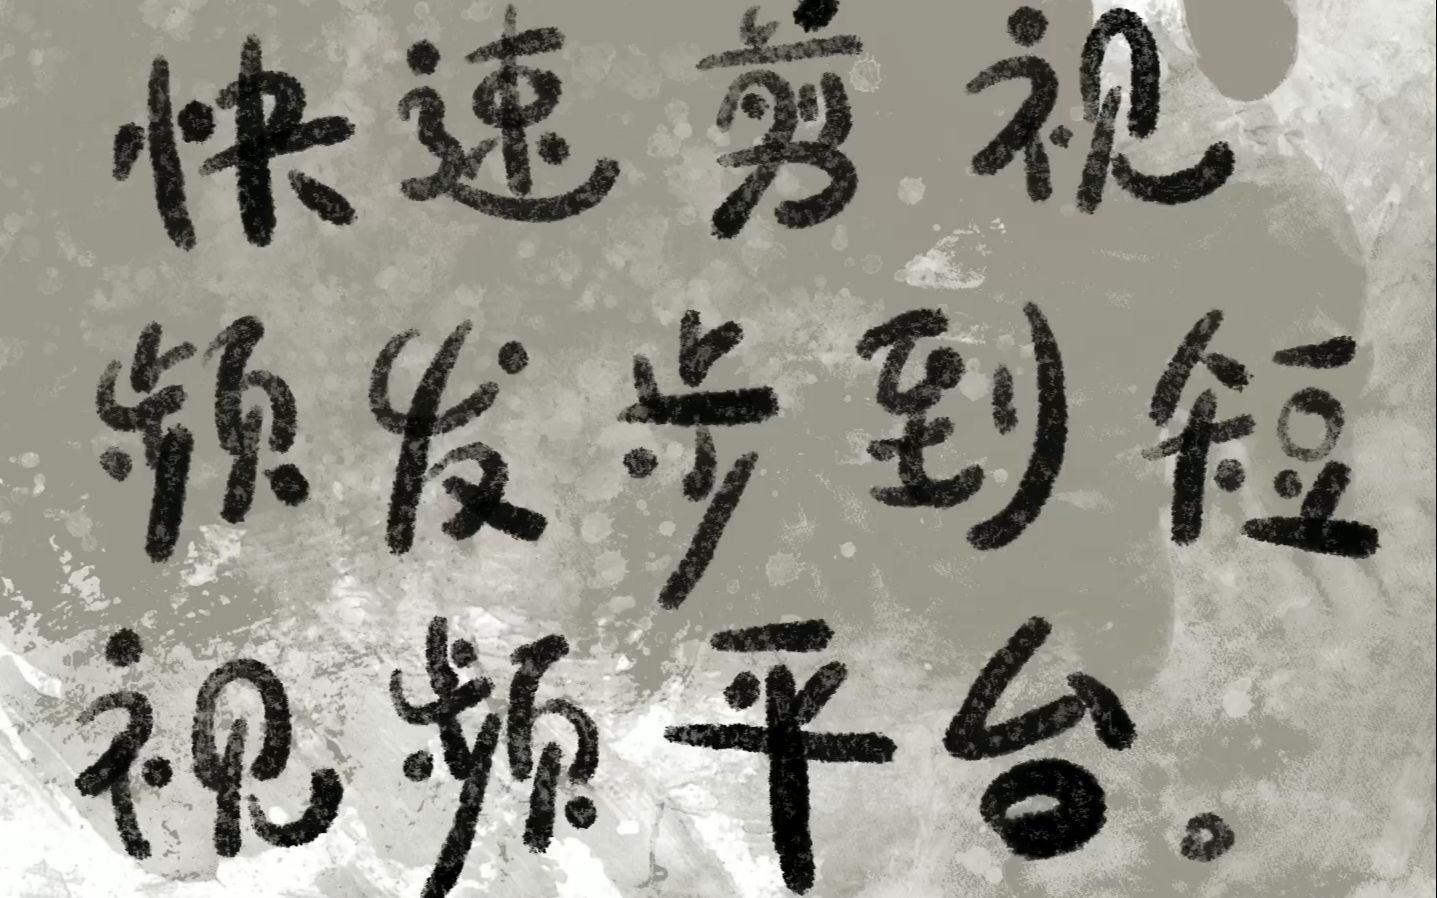 快速剪视
频发步到短
视频平台。